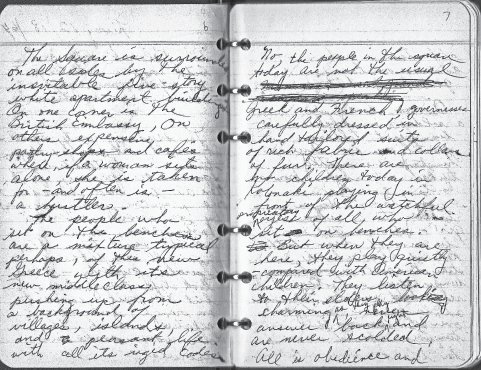 The square is surrounded
on all sides by the
inevitable five-story
white apartment buildings
On one corner is the
British Embassy, On
others expensive
pastry shops and cafes
where if a woman sits
alone she is taken
for - and often is -
a hustler.
The people who
sit on the benches
are a mixture typical
perhaps, of this new
Greece with its
new middle class
pushing up from
a background of
villages, islands
and a peasant life
with all its rigid codes
7
No, the people in the square
today are not the usual
Greek and French governesses
carefully dressed in
hand tailored suits
of rich fabric and collars
of fur. There are
no children today in
to make playing in
front of the watchful
proprietary
of all, who
sit on benches.
But when they are
here, they play quietly
compared with American
children. They listen
to their elders,
charming
answer back, and
are never scolded.
All is obedience and